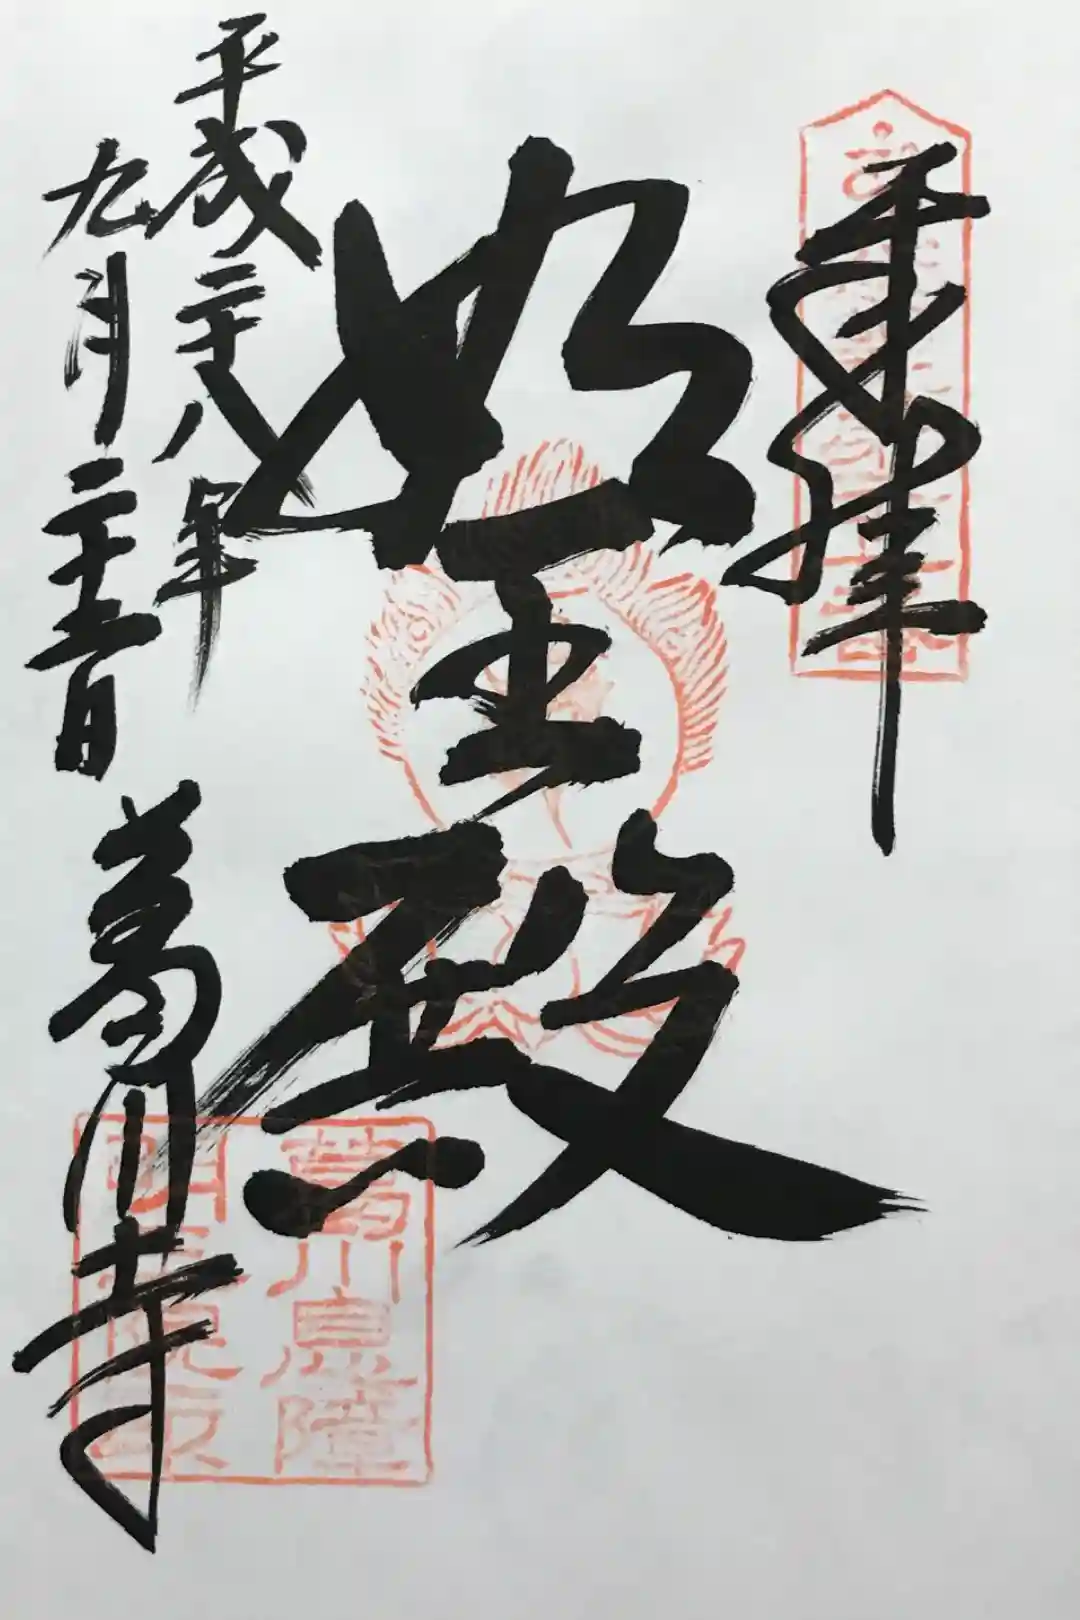 奉拝
明王殿
平成二十八年
九月二十二日
葛川寺
葛川息障
明王院